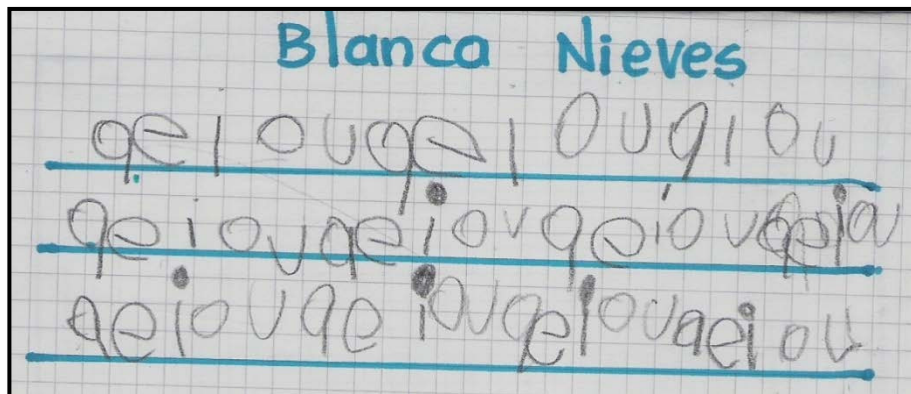 Blanca Nieves
aeiouaeiouaiou
aeiouaeiouaeiouaeiou
aeiouaeiouaeiouaeiou